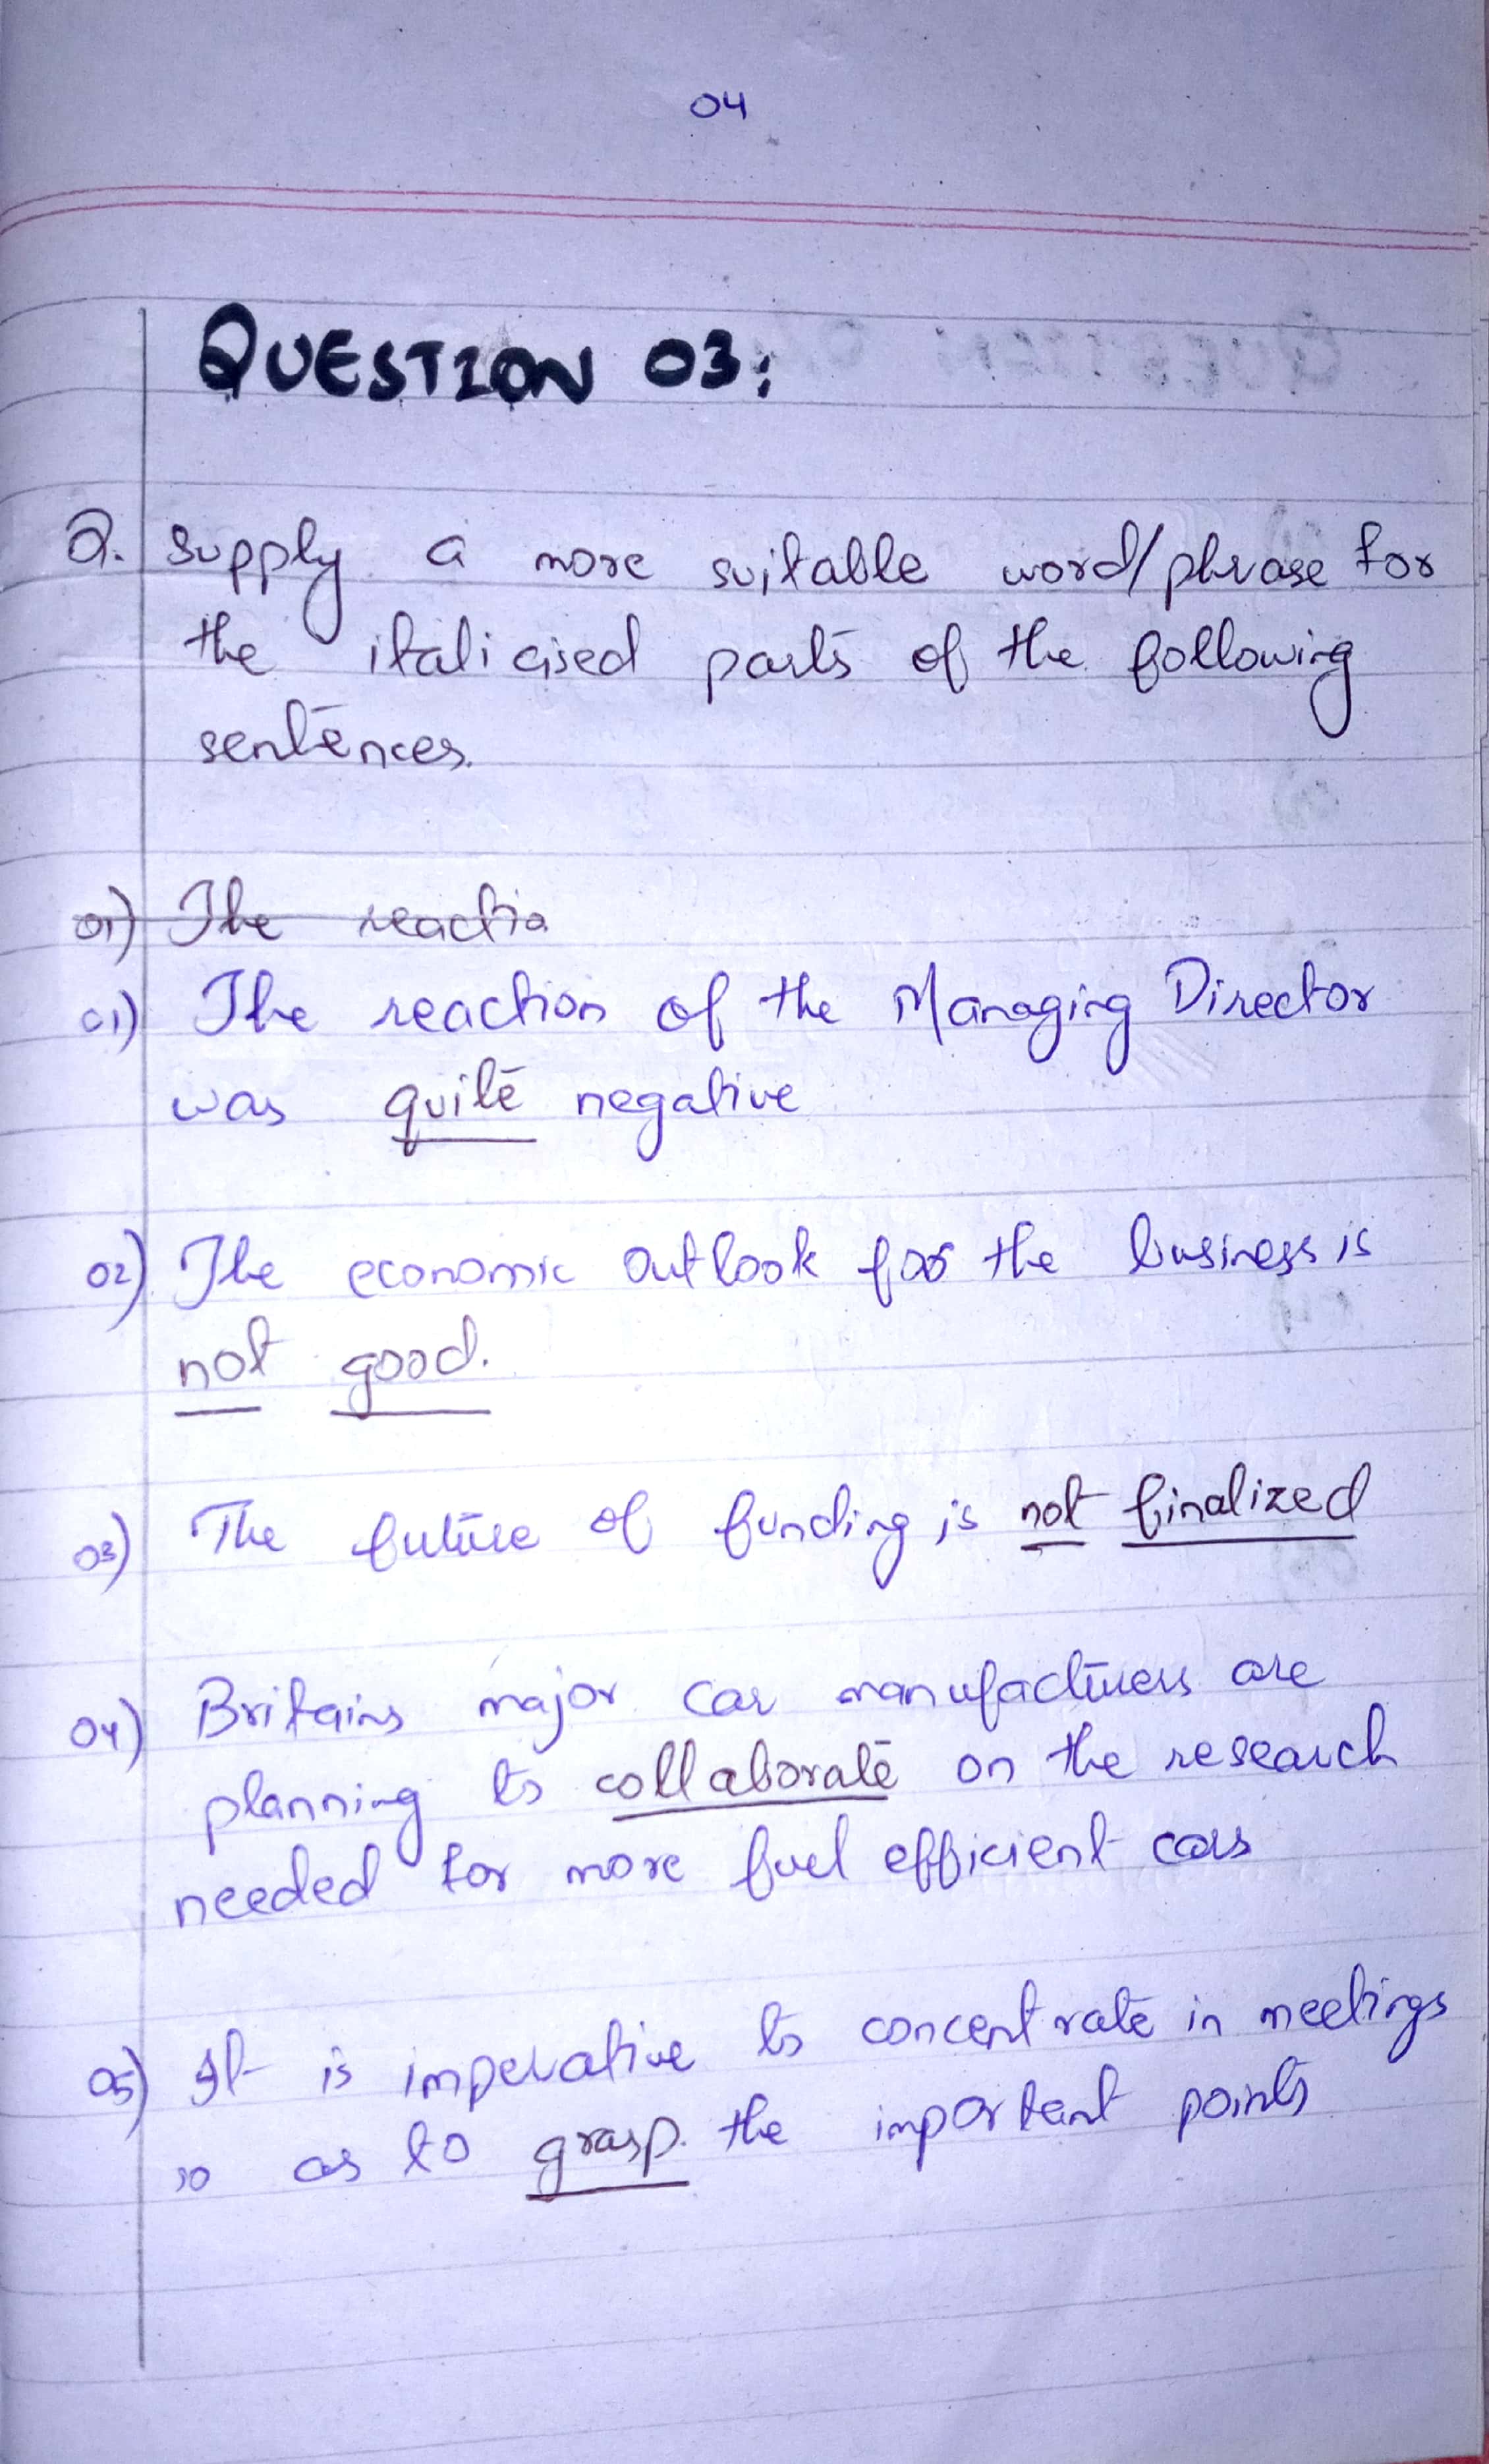 04
QUESTION 03:
Q. Supply a more suitable word/phrase for
the italicised parts of the following
sentences.
01) The reactio
01) The reaction of the Managing Director
was quite negative
02) The economic outlook for the business is
not good.
03) The future of funding is not finalized
04) Britains major car manufacturers are
planning to collaborate on the research
needed for more fuel efficient cars
05) It is imperative to concentrate in meetings
so as to grasp the important points